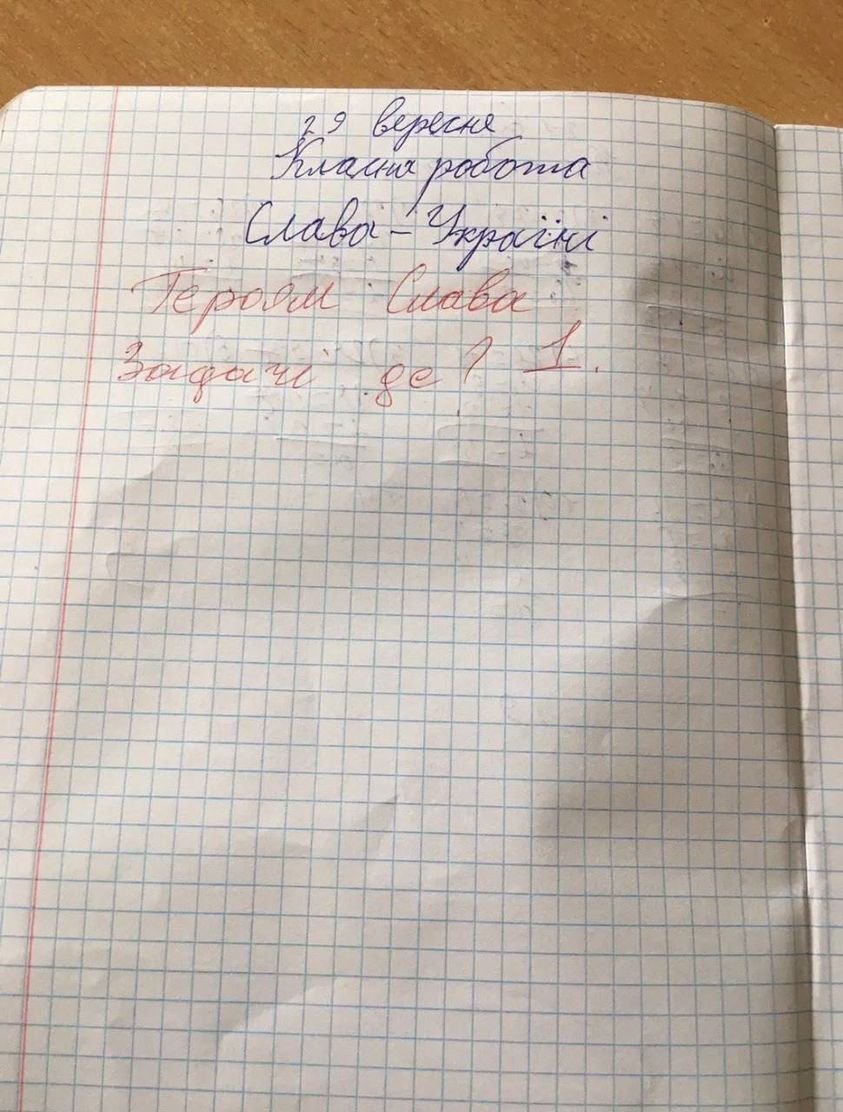 29 вересня
Класна робота
Слава - Україні
Героям Слава
Задачі де? 1.